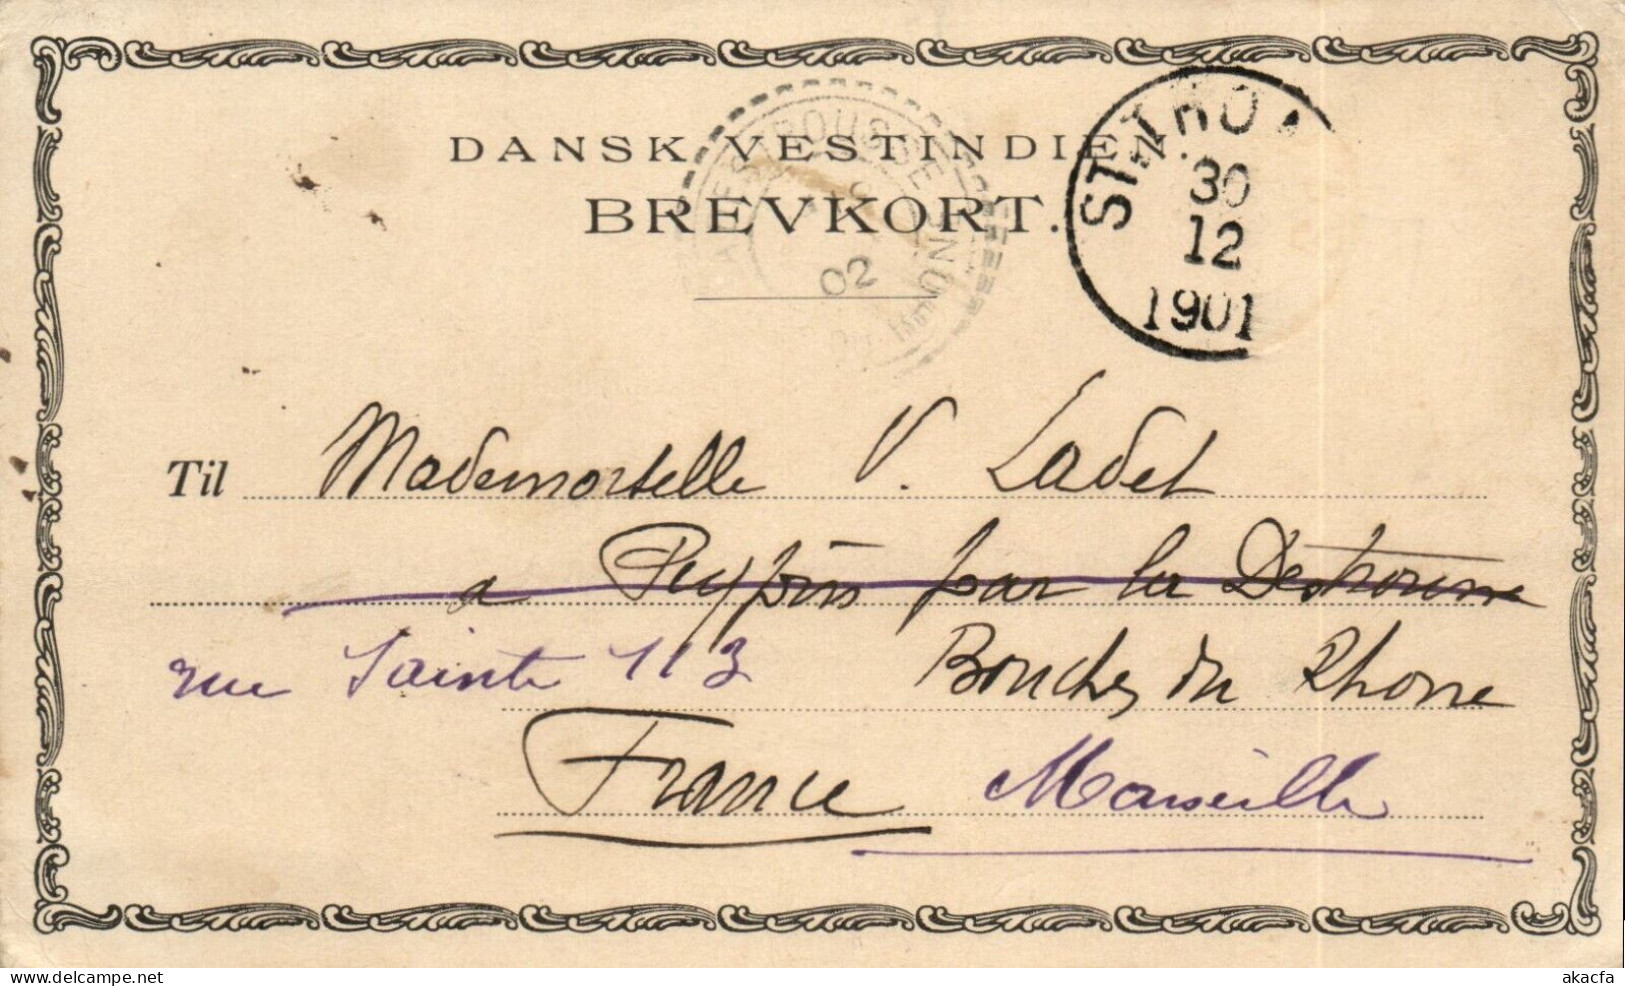 DANSK VESTINDIEN.
BREVKORT.
ST. THO
30
12
1901
02
Til Mademoiselle V. Ladet
a Peypin par la Destrousse
rue Sainte 113 Bouches du Rhone
France Marseille
www.delcampe.net
akacfa